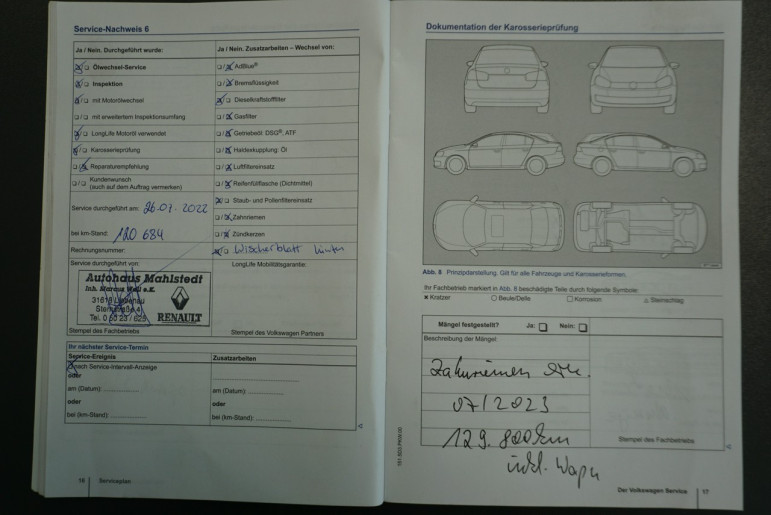 Service-Nachweis 6
Ja / Nein. Durchgeführt wurde:
Ölwechsel-Service
Inspektion
mit Motorölwechsel
mit erweitertem Inspektionsumfang
LongLife Motoröl verwendet
Karosserieprüfung
Reparaturempfehlung
Kundenwunsch
(auch auf dem Auftrag vermerken)
Service durchgeführt am: 26.07.2022
bei km-Stand: 120 684
Rechnungsnummer:
Service durchgeführt von:
Autohaus Mahlstedt
Inh. Marcus e.K.
RENAULT
Stempel des Fachbetriebs
Ja / Nein. Zusatzarbeiten – Wechsel von:
AdBlue®
Bremsflüssigkeit
Dieselkraftstofffilter
Gasfilter
Getriebeöl: DSG®, ATF
Haldexkupplung: Öl
Luftfiltereinsatz
Reifenfüllflasche (Dichtmittel)
Staub- und Pollenfiltereinsatz
Zahnriemen
Zündkerzen
Wischerblatt hinten
LongLife Mobilitätsgarantie:
Stempel des Volkswagen Partners
Ihr nächster Service-Termin
Service-Ereignis
nach Service-Intervall-Anzeige
oder
am (Datum):
oder
bei (km-Stand):
Zusatzarbeiten
am (Datum):
oder
bei (km-Stand):
16 Serviceplan
Dokumentation der Karosserieprüfung
Abb. 8 Prinzipdarstellung. Gilt für alle Fahrzeuge und Karosserieformen.
Ihr Fachbetrieb markiert in Abb. 8 beschädigte Teile durch folgende Symbole:
Kratzer
Beule/Delle
Korrosion
Steinschlag
Mängel festgestellt? Ja: Nein:
Beschreibung der Mängel:
Zahnriemen
07/2023
129.800km
inkl. Wapu
Stempel des Fachbetriebs
Der Volkswagen Service 17